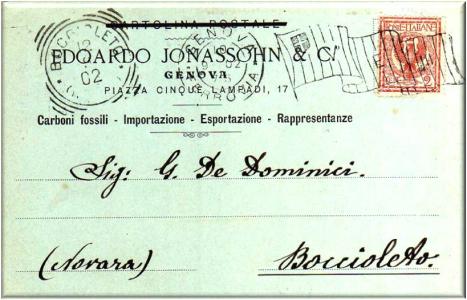 CARTOLINA POSTALE
EDOARDO JONASSOHN & C.
GENOVA
PIAZZA CINQUE LAMPADI, 17
Carboni fossili - Importazione - Esportazione - Rappresentanze
Sig: G. De Dominici.
(Novara) Boccioleto.
GENOVA
02